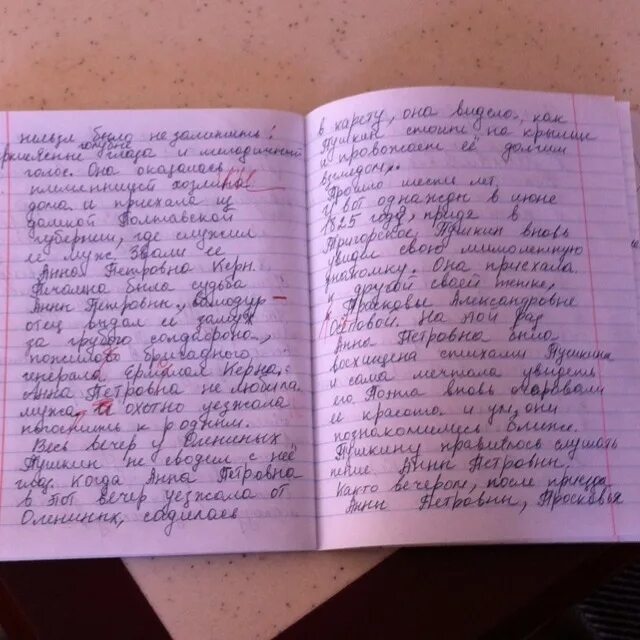 нельзя было не залюбить!
голубые
глаза и мелодичный
голос. Она оказалась
племянницей хозяина
дома и приехала из
далёкой Полтавской
губернии, где служил
её муж. Звали её
Анна Петровна Керн.
Печальна была судьба
Анны Петровны,
отец выдал её замуж
за грубого солдафона,
пожилого бригадного
генерала Ермолая Керна.
Анна Петровна не любила
мужа, и охотно уезжала
погостить к родным.
Весь вечер у Олениных
Пушкин не сводил с неё
глаз. Когда Анна Петровна
в тот вечер уезжала от
Олениных, садилась
в карету, она видела, как
Пушкин стоит на крыльце
и провожает её долгим
взглядом.
Прошло шесть лет
И вот однажды в июне
1825 года, придя в
Тригорское, Пушкин вновь
увидел свою мимолетную
знакомку. Она приехала
к другой своей тётке,
Прасковье Александровне
Осиповой. На той раз
Анна Петровна была
восхищена стихами Пушкина
и сама мечтала увидеть
его Поэта вновь очаровали
её красота и ум, они
познакомились ближе.
Пушкину нравилось слушать
пение Анны Петровны.
Както вечером, после приезда
Анны Петровны, Прасковья